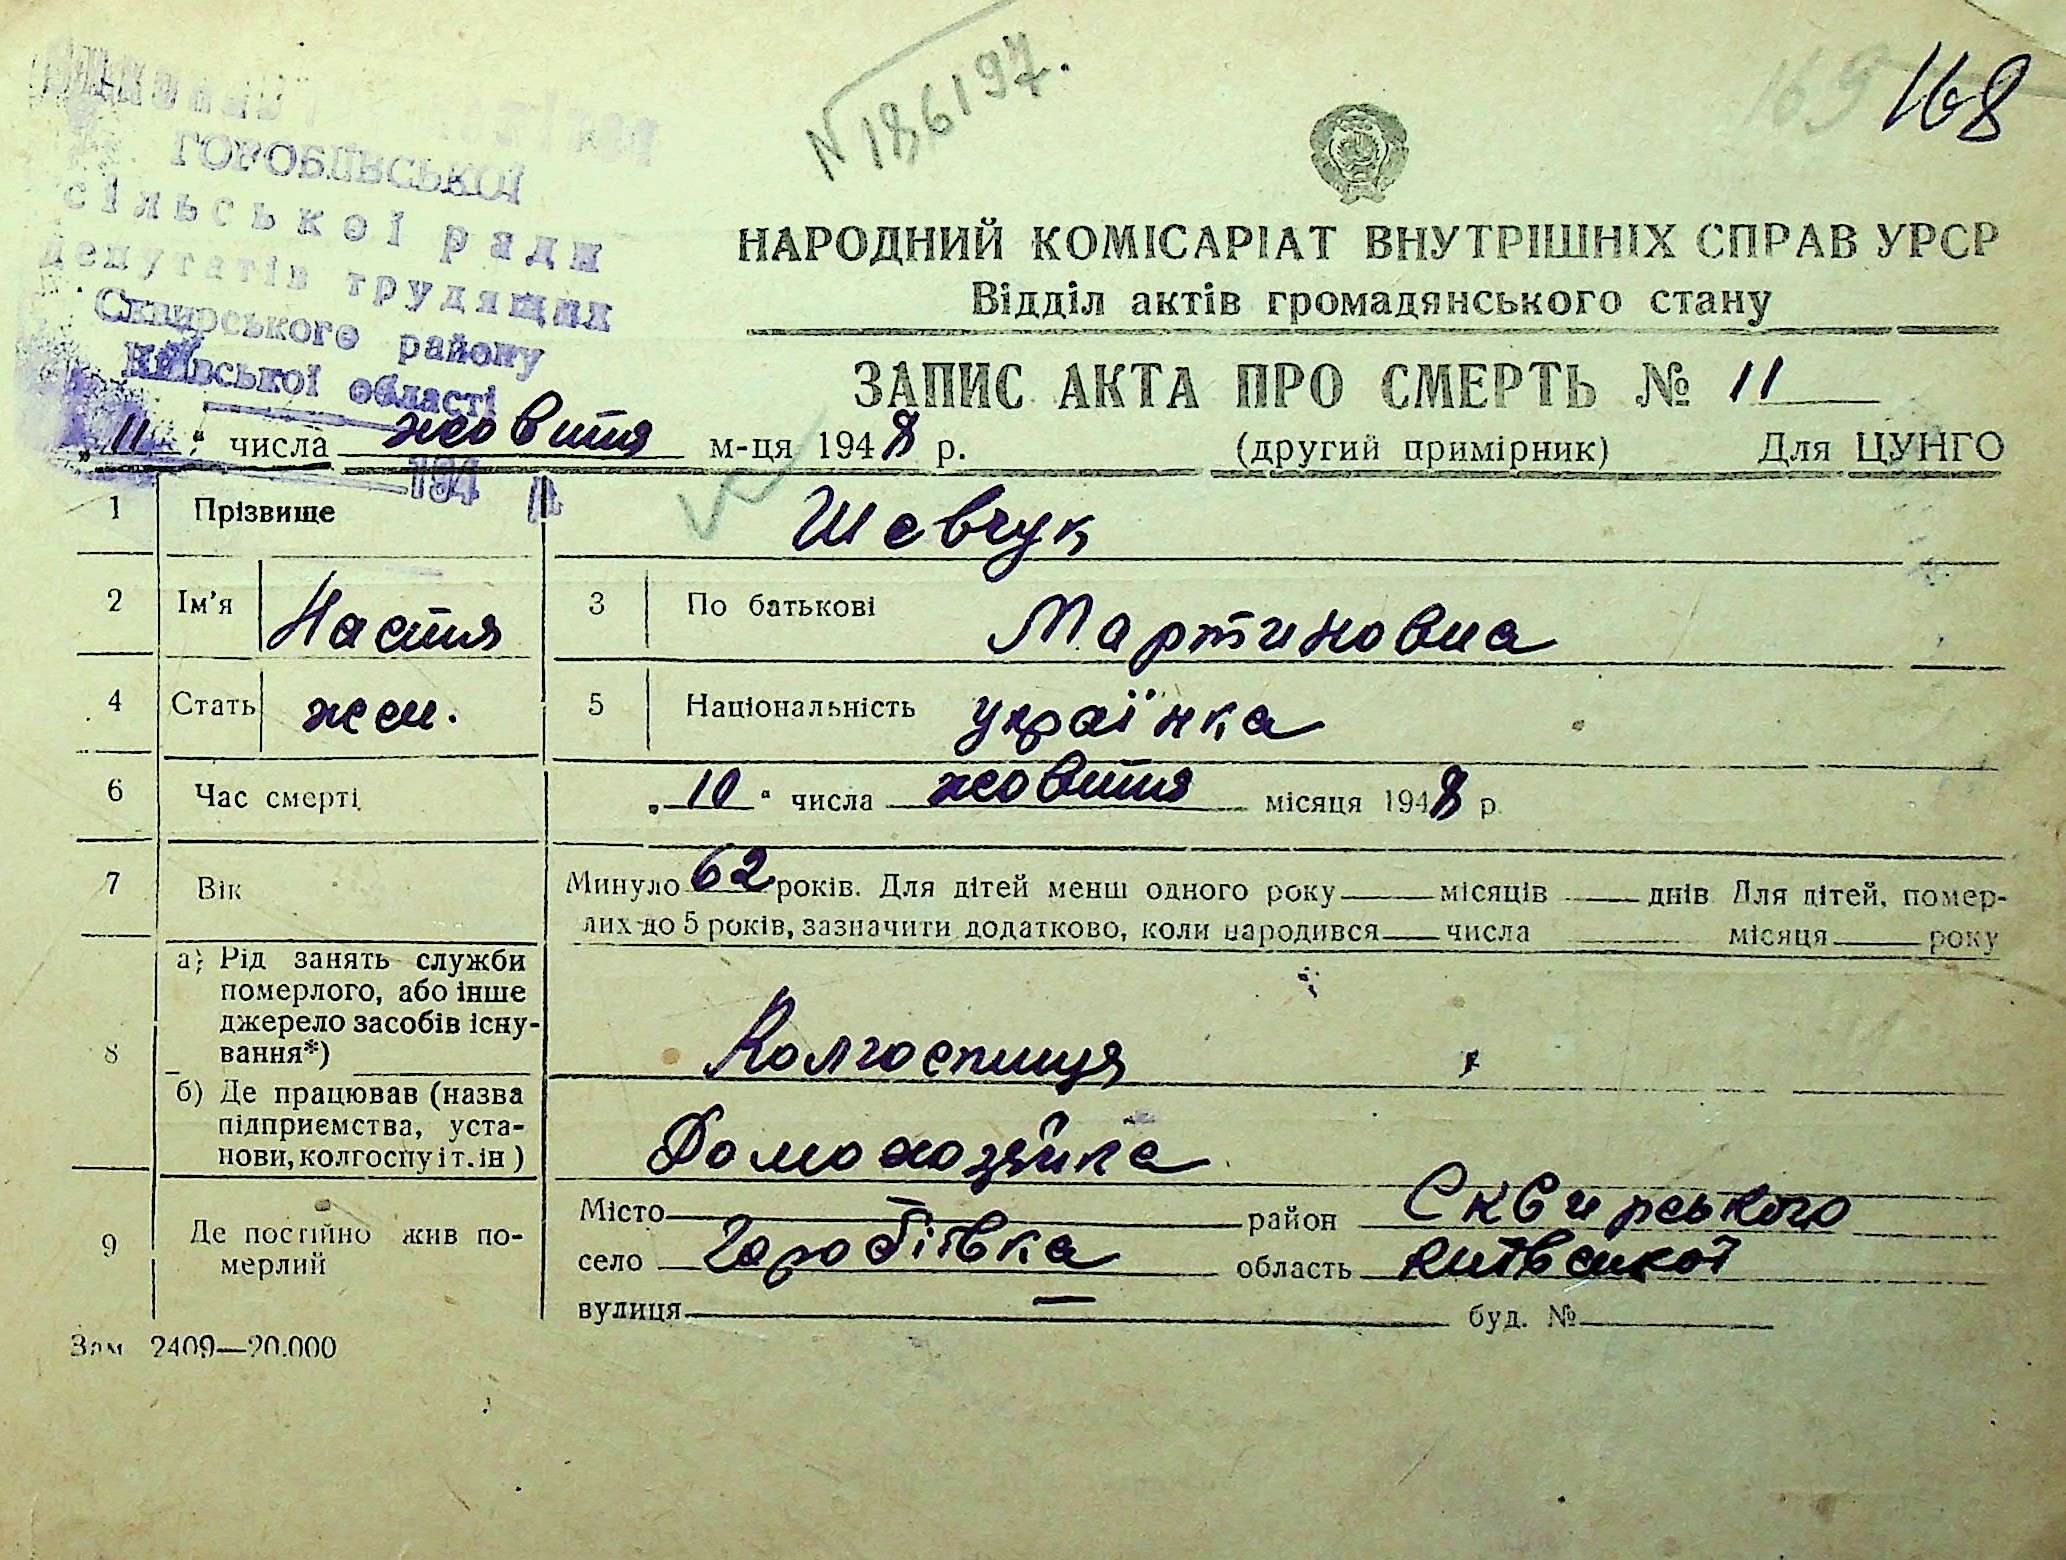 N 186197.
169 168
ГОРОБІЇВСЬКОЇ
сільської ради
депутатів трудящих
Сквирського району
Київської області
194 р.
НАРОДНИЙ КОМІСАРІАТ ВНУТРІШНІХ СПРАВ УРСР
Відділ актів громадянського стану
ЗАПИС АКТА ПРО СМЕРТЬ № 11
„11“ числа жовтня м-ця 1948 р. (другий примірник) Для ЦУНГО
1 Прізвище Шевчук
2 Ім'я Настя 3 По батькові Мартиновна
4 Стать жен. 5 Національність українка
6 Час смерті „10“ числа жовтня місяця 1948 р.
7 Вік Минуло 62 років. Для дітей менш одного року місяців днів Для дітей, помер-
лих до 5 років, зазначити додатково, коли народився числа місяця року
8 а) Рід занять служби
померлого, або інше
джерело засобів існу-
вання*) Колгоспниця
б) Де працював (назва
підприємства, уста-
нови, колгоспу і т. ін) Домохозяйка
9 Де постійно жив по-
мерлий
Місто — район Сквирського
село Горобіївка область Київської
вулиця — буд. №
Зам 2409—20.000